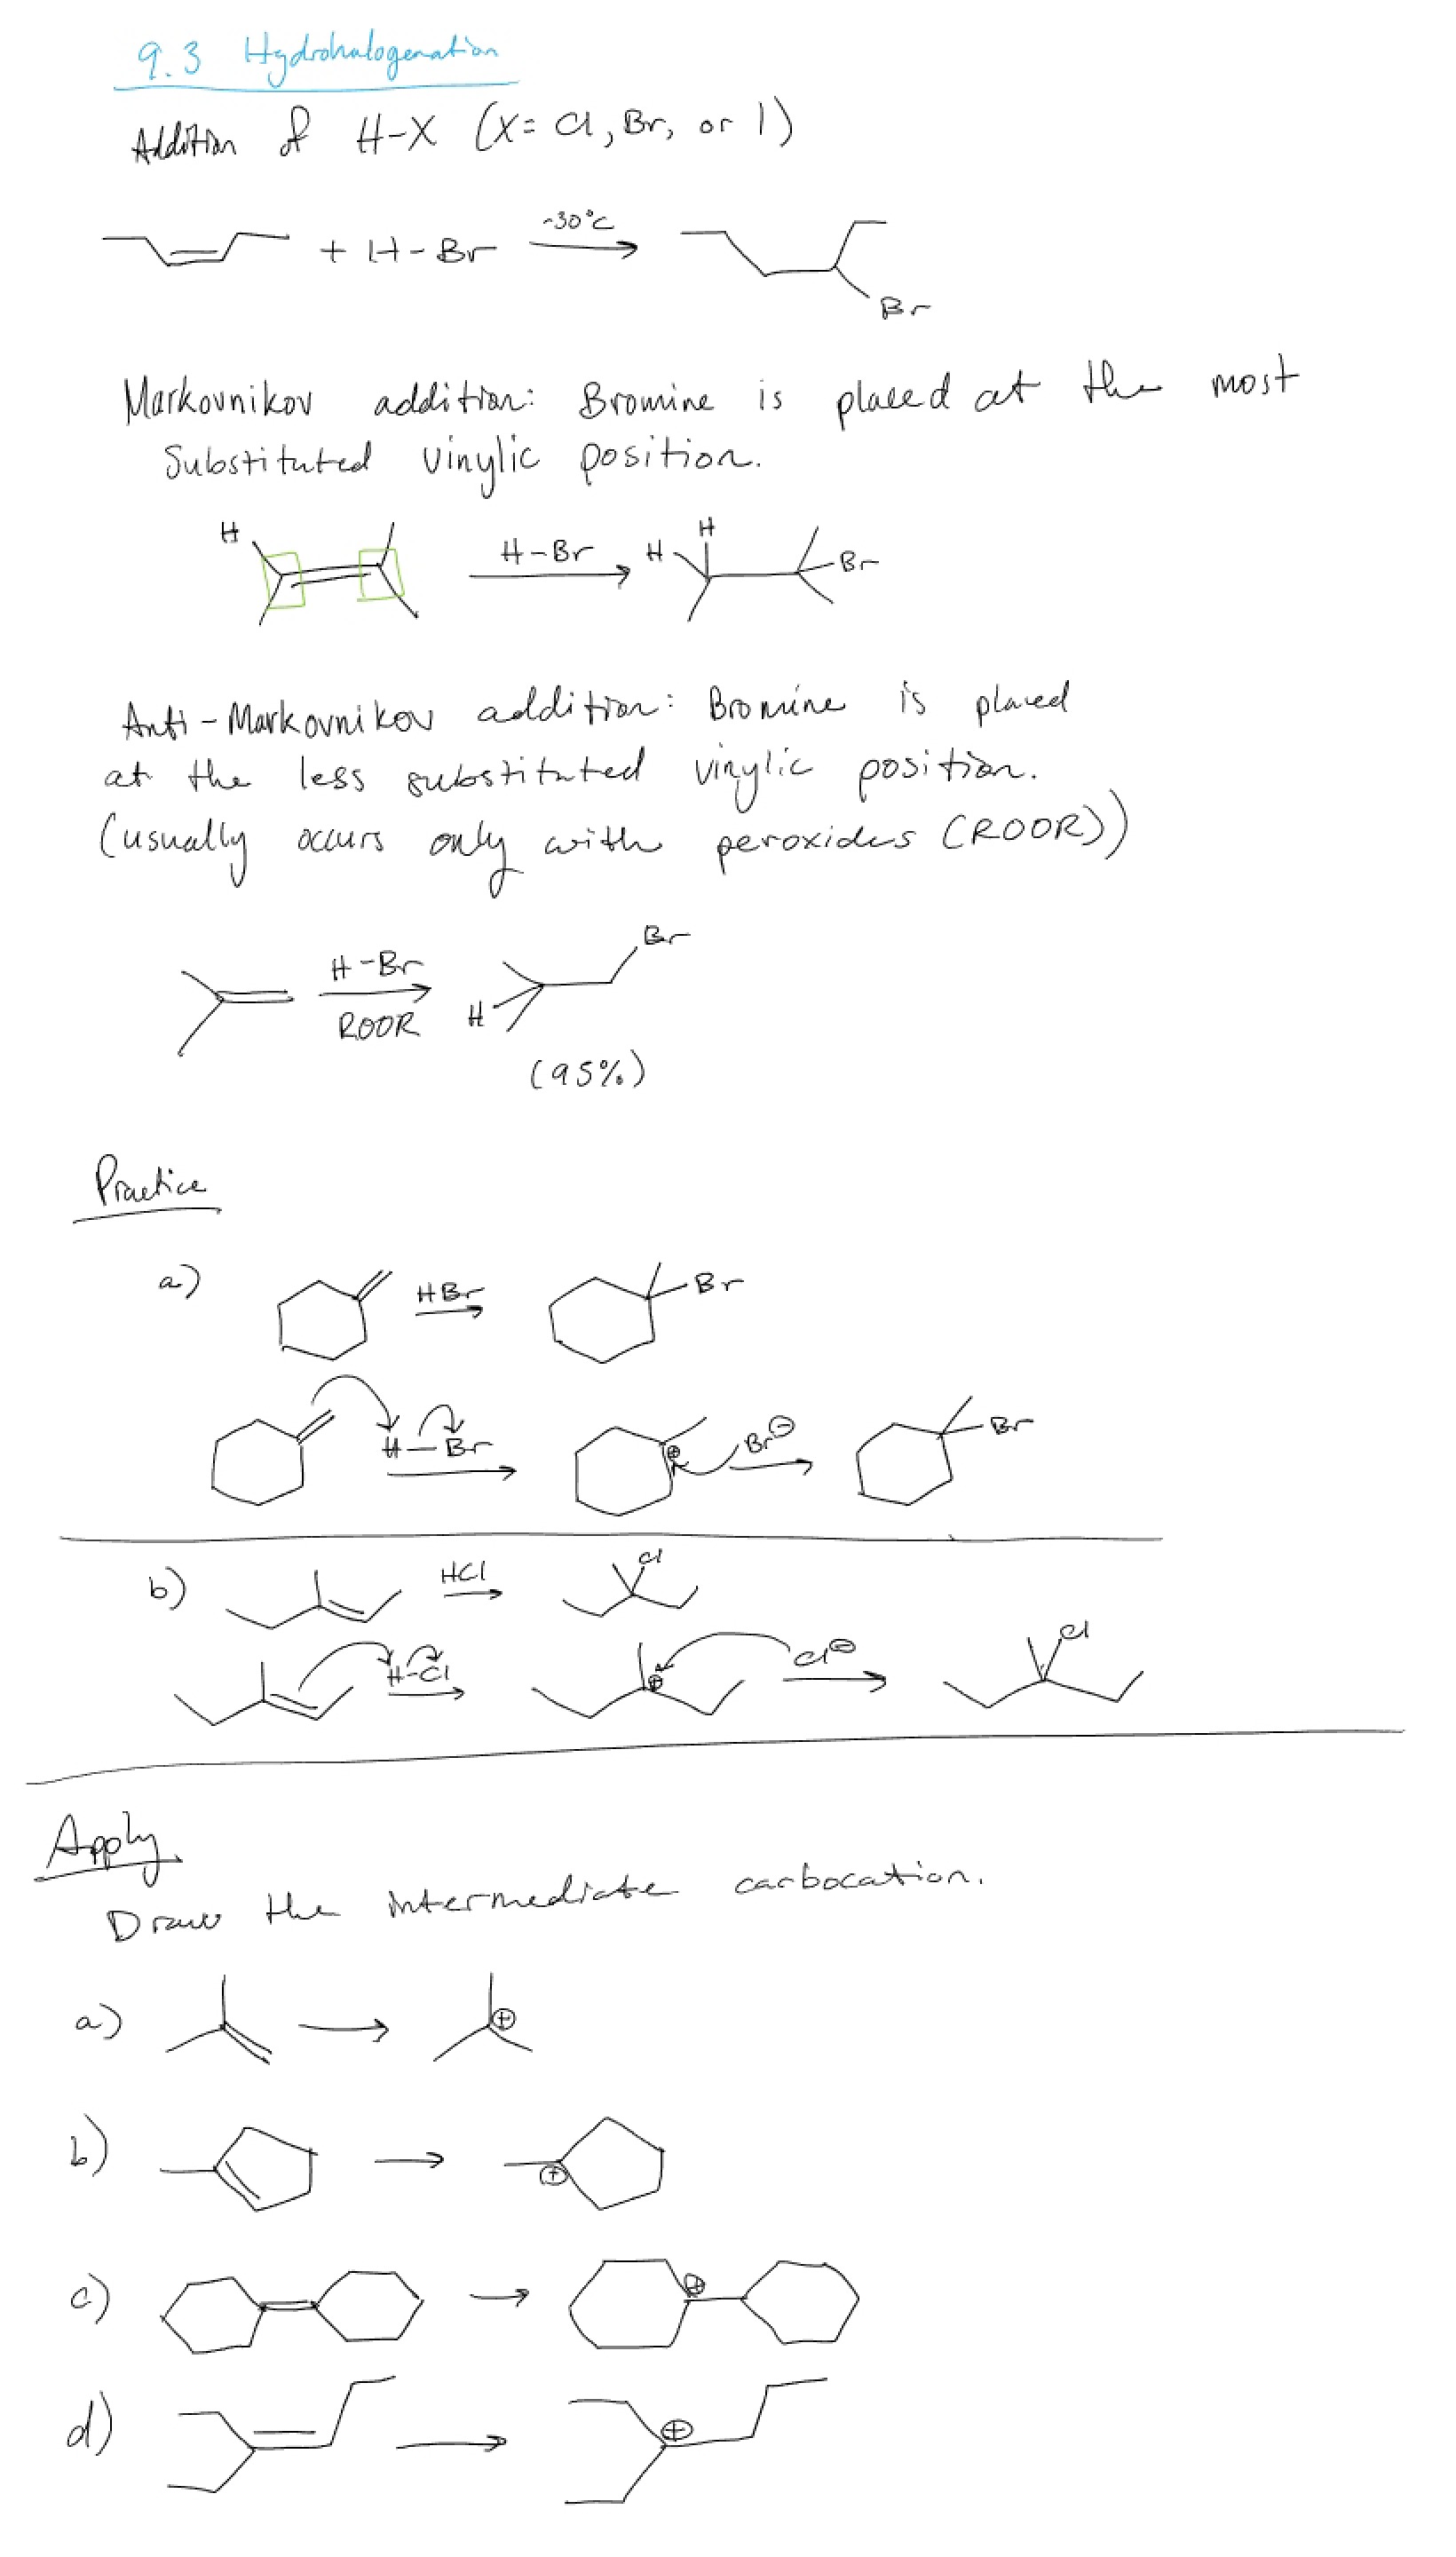 9.3 Hydrohalogenation
Addition of H-X (X= Cl, Br, or I)
+ H-Br -30°C
Br
Markovnikov addition: Bromine is placed at the most
substituted vinylic position.
H H-Br H H Br
Anti-Markovnikov addition: Bromine is placed
at the less substituted vinylic position.
(usually occurs only with peroxides (ROOR))
H-Br Br
ROOR H
(95%)
Practice
a) HBr Br
H-Br ⊕ Br⊖ Br
b) HCl Cl
H-Cl ⊕ Cl⊖ Cl
Apply
Draw the intermediate carbocation.
a) ⊕
b) ⊕
c) ⊕
d) ⊕